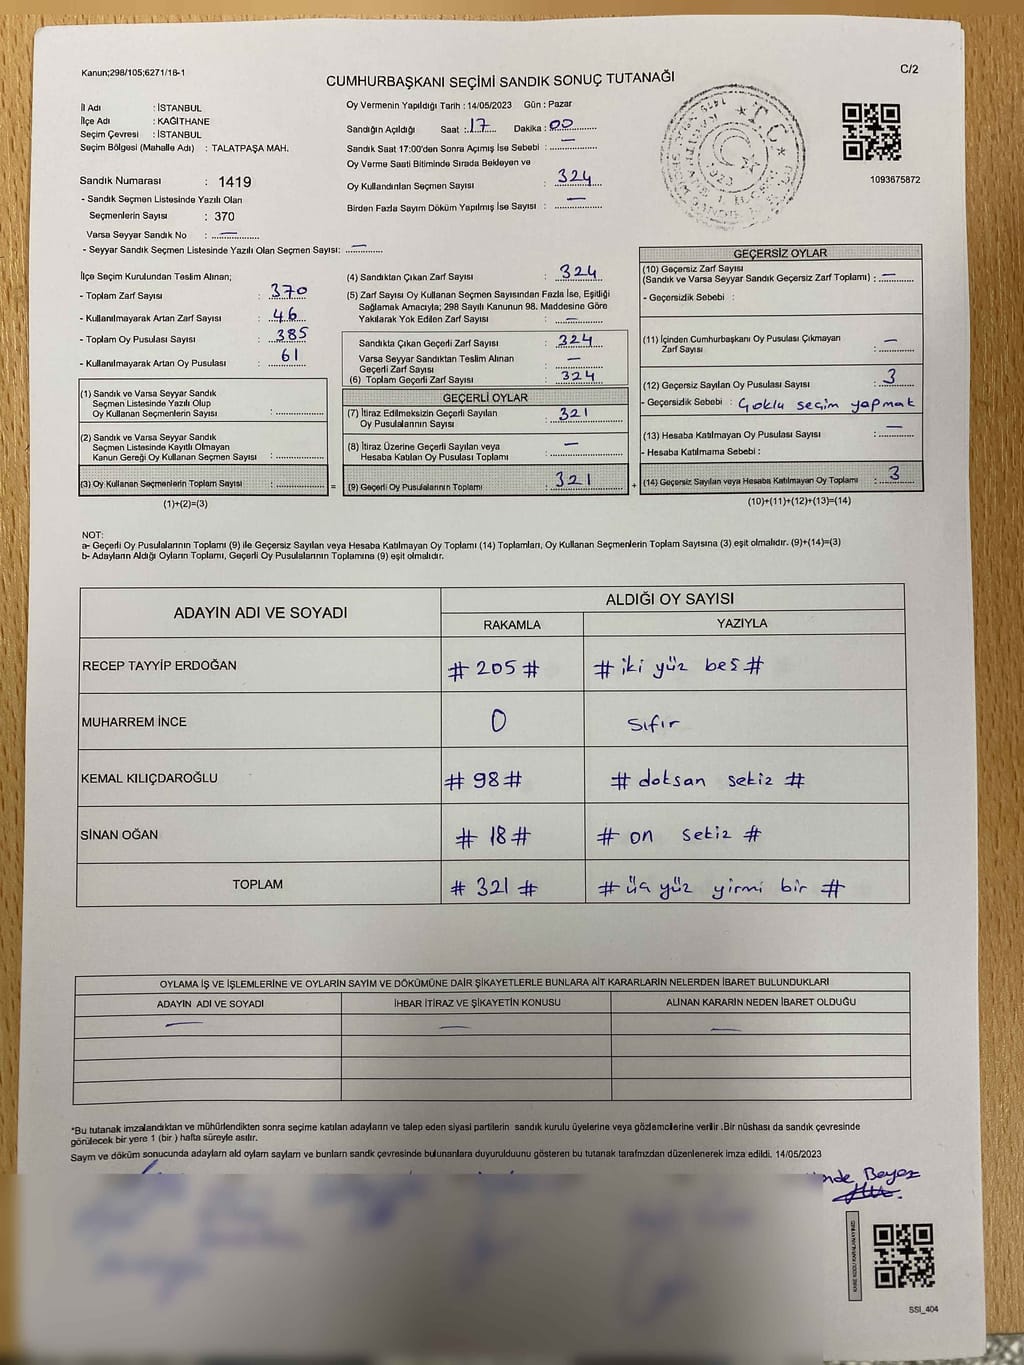 Kanun;298/105;6271/18-1
C/2
CUMHURBAŞKANI SEÇİMİ SANDIK SONUÇ TUTANAĞI
İl Adı : İSTANBUL
İlçe Adı : KAĞITHANE
Seçim Çevresi : İSTANBUL
Seçim Bölgesi (Mahalle Adı) : TALATPAŞA MAH.
Sandık Numarası : 1419
- Sandık Seçmen Listesinde Yazılı Olan
Seçmenlerin Sayısı : 370
Varsa Seyyar Sandık No : —
- Seyyar Sandık Seçmen Listesinde Yazılı Olan Seçmen Sayısı: —
Oy Vermenin Yapıldığı Tarih : 14/05/2023 Gün : Pazar
Sandığın Açıldığı Saat : 17 Dakika : 00
Sandık Saat 17:00'den Sonra Açımış İse Sebebi : —
Oy Verme Saati Bitiminde Sırada Bekleyen ve
Oy Kullandırılan Seçmen Sayısı : 324
Birden Fazla Sayım Döküm Yapılmış İse Sayısı : —
1093675872
İlçe Seçim Kurulundan Teslim Alınan;
- Toplam Zarf Sayısı : 370
- Kullanılmayarak Artan Zarf Sayısı : 46
- Toplam Oy Pusulası Sayısı : 385
- Kullanılmayarak Artan Oy Pusulası : 61
(1) Sandık ve Varsa Seyyar Sandık
Seçmen Listesinde Yazılı Olup
Oy Kullanan Seçmenlerin Sayısı :
(2) Sandık ve Varsa Seyyar Sandık
Seçmen Listesinde Kayıtlı Olmayan
Kanun Gereği Oy Kullanan Seçmen Sayısı :
(3) Oy Kullanan Seçmenlerin Toplam Sayısı :
(1)+(2)=(3)
(4) Sandıktan Çıkan Zarf Sayısı : 324
(5) Zarf Sayısı Oy Kullanan Seçmen Sayısından Fazla İse, Eşitliği
Sağlamak Amacıyla; 298 Sayılı Kanunun 98. Maddesine Göre
Yakılarak Yok Edilen Zarf Sayısı : —
Sandıkta Çıkan Geçerli Zarf Sayısı : 324
Varsa Seyyar Sandıktan Teslim Alınan
Geçerli Zarf Sayısı : —
(6) Toplam Geçerli Zarf Sayısı : 324
GEÇERLİ OYLAR
(7) İtiraz Edilmeksizin Geçerli Sayılan
Oy Pusulalarının Sayısı : 321
(8) İtiraz Üzerine Geçerli Sayılan veya
Hesaba Katılan Oy Pusulası Toplamı : —
= (9) Geçerli Oy Pusulalarının Toplamı : 321
GEÇERSİZ OYLAR
(10) Geçersiz Zarf Sayısı
(Sandık ve Varsa Seyyar Sandık Geçersiz Zarf Toplamı) : —
- Geçersizlik Sebebi :
(11) İçinden Cumhurbaşkanı Oy Pusulası Çıkmayan
Zarf Sayısı : —
(12) Geçersiz Sayılan Oy Pusulası Sayısı : 3
- Geçersizlik Sebebi : Çoklu seçim yapmak
(13) Hesaba Katılmayan Oy Pusulası Sayısı : —
- Hesaba Katılmama Sebebi :
+ (14) Geçersiz Sayılan veya Hesaba Katılmayan Oy Toplamı : 3
(10)+(11)+(12)+(13)=(14)
NOT:
a- Geçerli Oy Pusulalarının Toplamı (9) ile Geçersiz Sayılan veya Hesaba Katılmayan Oy Toplamı (14) Toplamları, Oy Kullanan Seçmenlerin Toplam Sayısına (3) eşit olmalıdır. (9)+(14)=(3)
b- Adayların Aldığı Oyların Toplamı, Geçerli Oy Pusulalarının Toplamına (9) eşit olmalıdır.
ADAYIN ADI VE SOYADI
ALDIĞI OY SAYISI
RAKAMLA YAZIYLA
RECEP TAYYİP ERDOĞAN # 205 # # iki yüz beş #
MUHARREM İNCE 0 sıfır
KEMAL KILIÇDAROĞLU # 98 # # doksan sekiz #
SİNAN OĞAN # 18 # # on sekiz #
TOPLAM # 321 # # üç yüz yirmi bir #
OYLAMA İŞ VE İŞLEMLERİNE VE OYLARIN SAYIM VE DÖKÜMÜNE DAİR ŞİKAYETLERLE BUNLARA AİT KARARLARIN NELERDEN İBARET BULUNDUKLARI
ADAYIN ADI VE SOYADI İHBAR İTİRAZ VE ŞİKAYETİN KONUSU ALINAN KARARIN NEDEN İBARET OLDUĞU
— — —
*Bu tutanak imzalandıktan ve mühürlendikten sonra seçime katılan adayların ve talep eden siyasi partilerin sandık kurulu üyelerine veya gözlemcilerine verilir .Bir nüshası da sandık çevresinde
görülecek bir yere 1 (bir ) hafta süreyle asılır.
Sayım ve döküm sonucunda adayların aldı oyların sayların ve bunların sandk çevresinde bulunanlara duyurulduunu gösteren bu tutanak tarafmzdan düzenlenerek imza edildi. 14/05/2023
Beyaz
SSI_404